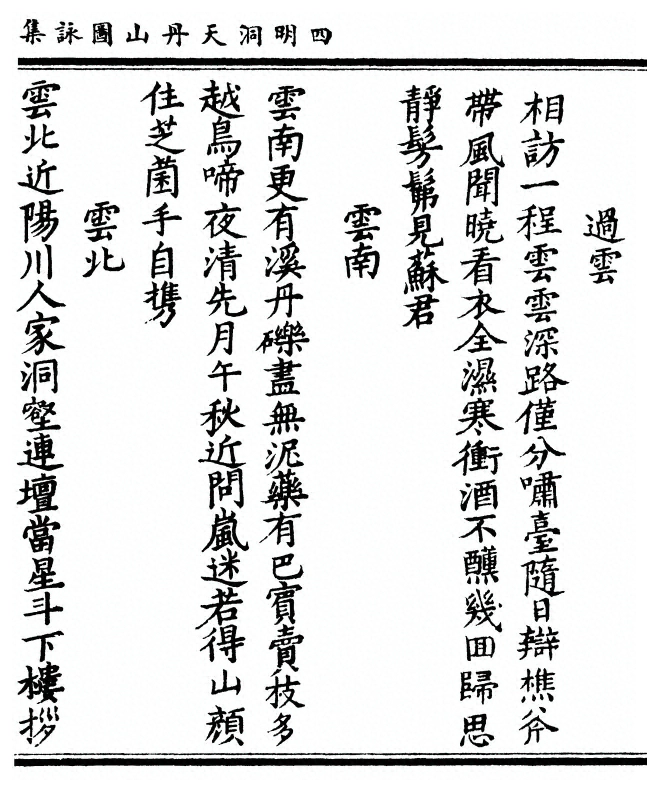 四明洞天丹山圖詠集
過雲
相訪一程雲雲深路僅分嘯臺隨日辯樵斧
帶風聞曉看衣全濕寒衝酒不醺幾回歸思
靜髣髴見蘇君
雲南
雲南更有溪丹礫盡無泥藥有巴賓賣枝多
越鳥啼夜清先月午秋近問嵐迷若得山顔
住芝菌手自携
雲北
雲北近陽川人家洞壑連壇當星斗下樓拶